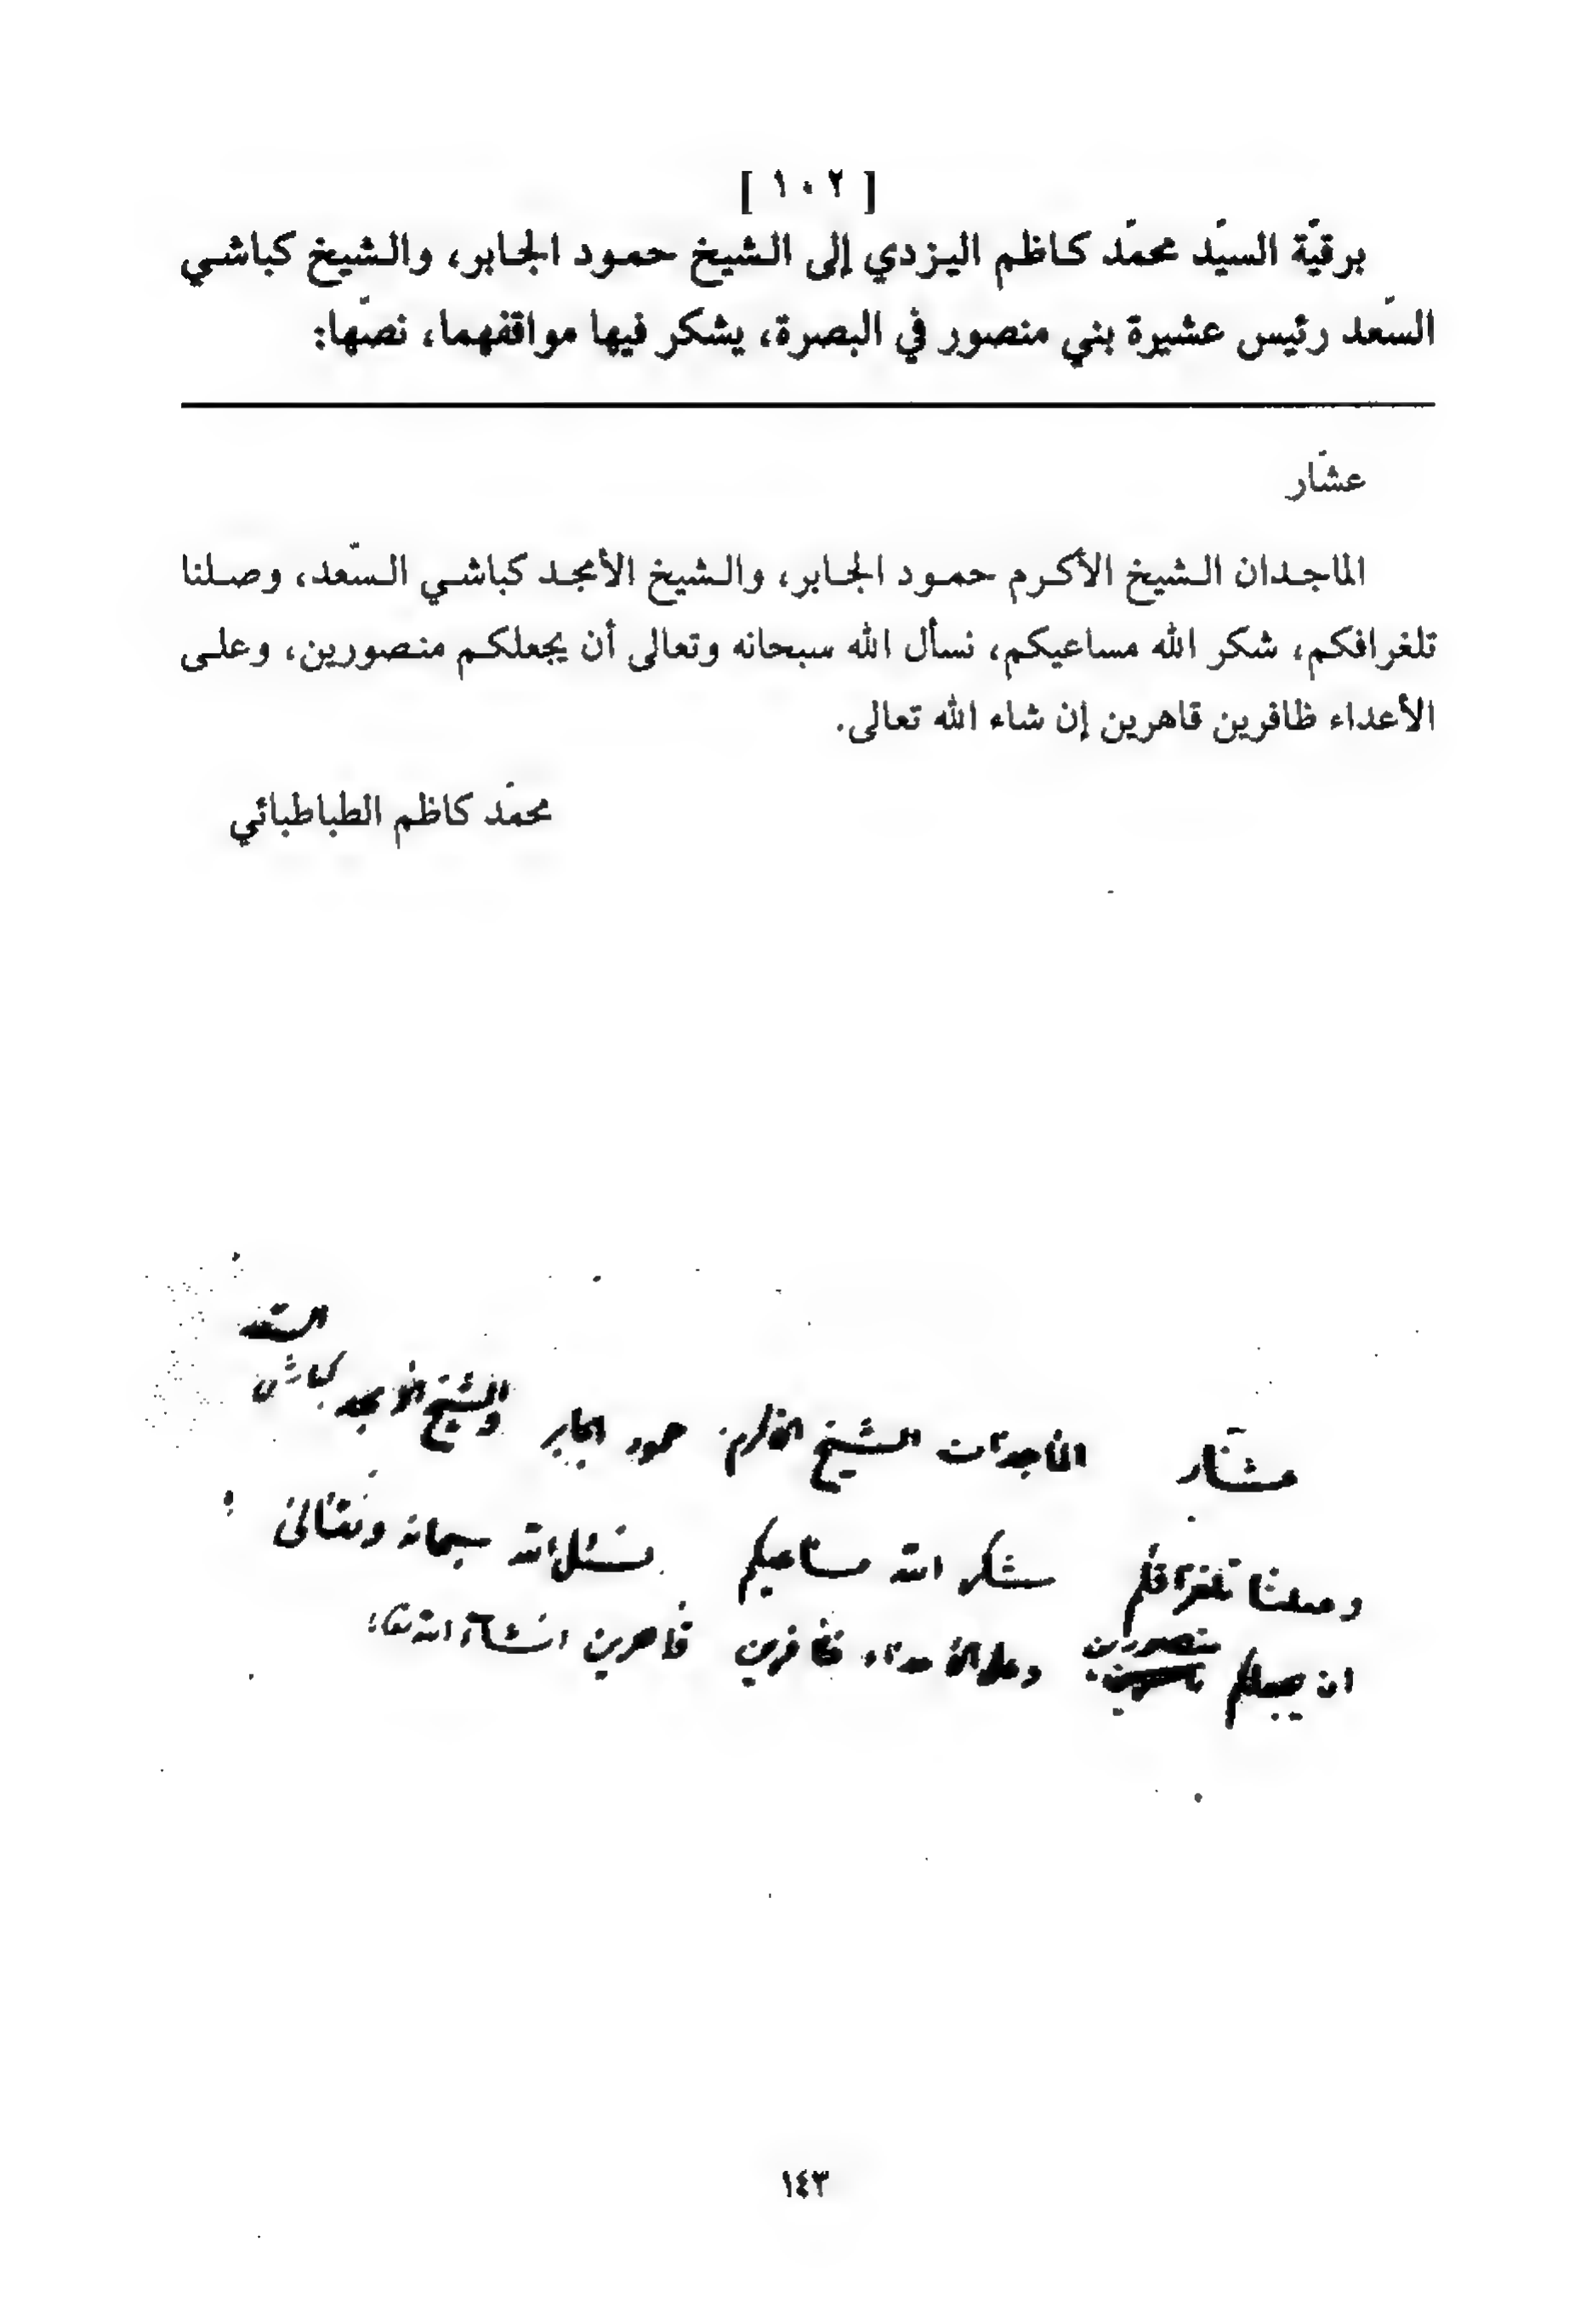 [ ١٠٢ ]
برقيّة السيّد محمّد كاظم اليزدي إلى الشيخ حمود الجابر، والشيخ كباشي
السّعد رئيس عشيرة بني منصور في البصرة، يشكر فيها مواقفهما، نصّها:
عشّار
الماجدان الشيخ الأكرم حمود الجابر، والشيخ الأمجد كباشي السّعد، وصلنا
تلغرافكم، شكر الله مساعيكم، نسأل الله سبحانه وتعالى أن يجعلكم منصورين، وعلى
الأعداء ظافرين قاهرين إن شاء الله تعالى.
محمّد كاظم الطباطبائي
السّعد
عشّار الماجدان الشيخ الاكرم حمود الجابر والشيخ الأمجد كباشي
وصلنا تلغرافكم شكر الله مساعيكم نسئل الله سبحانه وتعالى
منصورين
ان يجعلكم وعلى الأعداء ظافرين قاهرين انشاء الله تعا
١٤٣